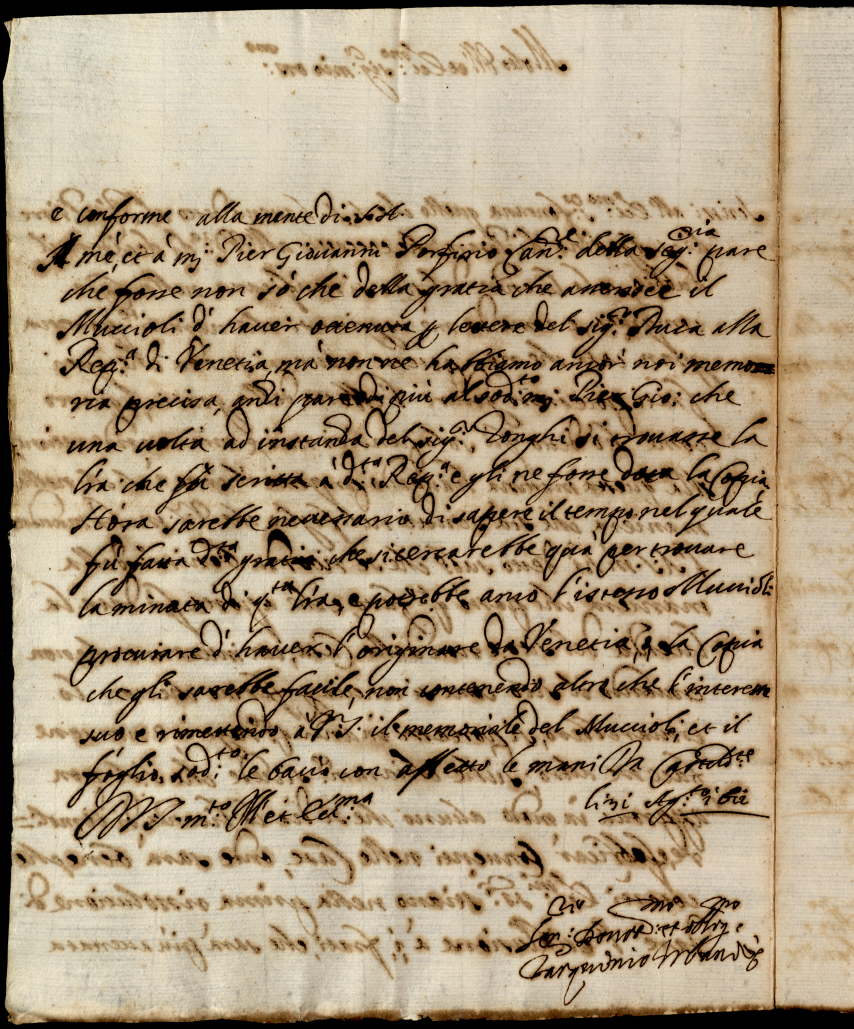 e conforme alla mente di V.S.
A me, et à mr: Pier Giovanni Porfirio Canc.e della Seg.ria pare
che fosse non sò che della gratia che attendée il
Muccioli d' haver ottenuta p lettere del sig.r Duca alla
Rep.ca di Venetia, mà non ne habbiamo ancor noi memo=
ria precisa, anzi pare di più al sod.to mr: Pier Gio: che
una volta ad instanza del sig.r Zonghi si trovasse la
lra che fù scritta à d.ta Rep.ca e gli ne fosse data la Copia
Hora sarebbe necessario di sapere il tempo nel quale
fù fatta d.ta gratia che si cercarebbe quà per trovare
la minuta di q.ta lra, e potrebbe anco l'istesso Muccioli
procurare d' haver l' originare da Venetia, ò la Copia
che gli sarebbe facile, non contenendo altro che l' interesse
suo e rimettendo à V.S. il memoriale del Muccioli, et il
foglio sod.to le bacio con affetto le mani Da
V.S. m.to Ill. et Ecc.ma
Ser.re
Tarquinio Urbani